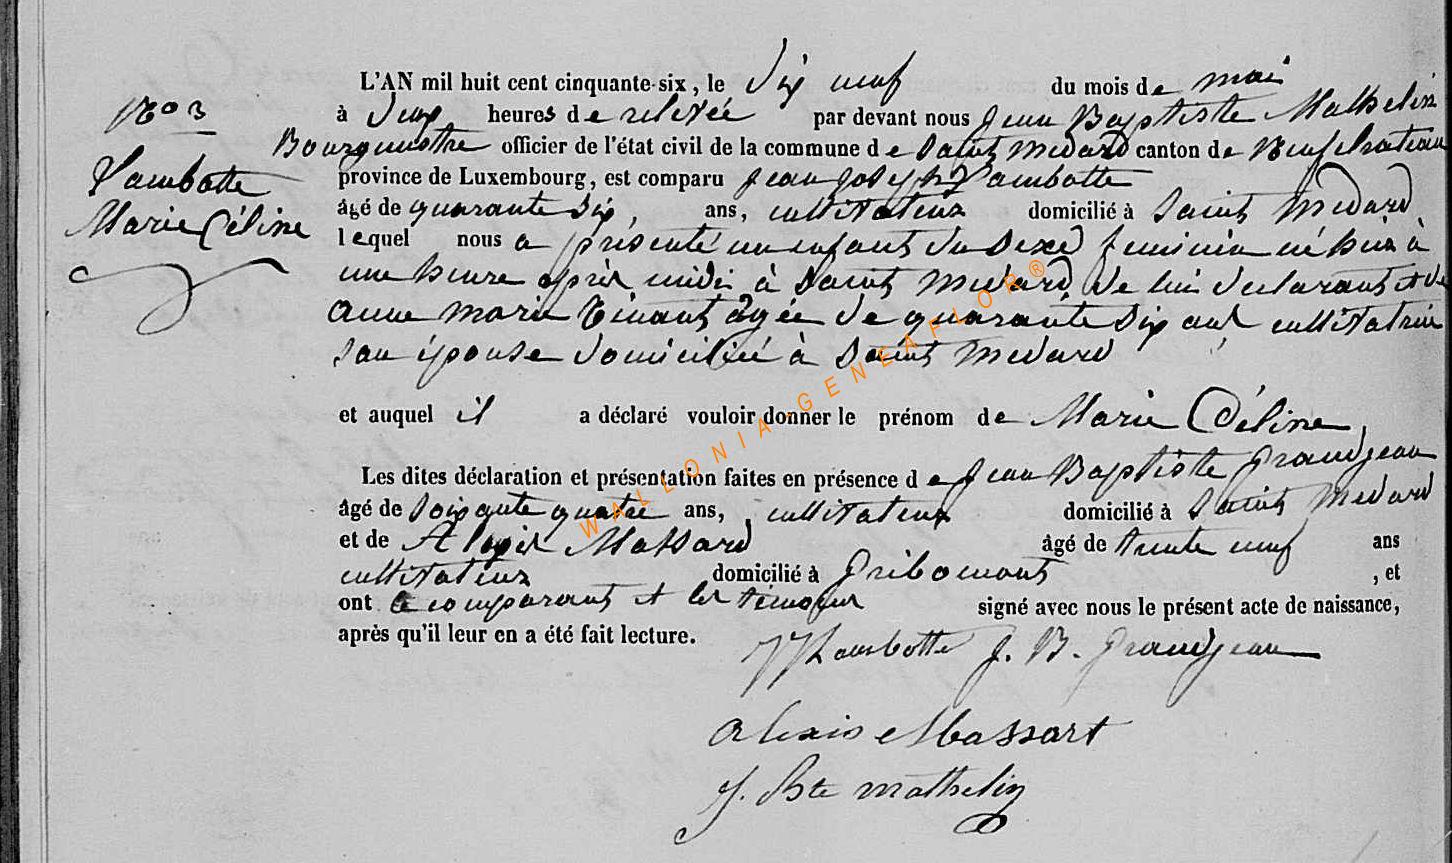 N° 3
Lambotte
Marie Céline
L'AN mil huit cent cinquante-six, le dix neuf du mois de mai
à deux heures de relevée par devant nous Jean Baptiste Mathelin
Bourgmestre officier de l'état civil de la commune de Saint Medard canton de Neufchateau
province de Luxembourg, est comparu Jean Joseph Lambotte
âgé de quarante six, ans, cultivateur domicilié à Saint Medard,
lequel nous a présenté un enfant du sexe feminin né hier à
une heure après midi à Saint Medard, de lui déclarant et de
Anne Marie Tinant âgée de quarante six ans, cultivatrice
son épouse domiciliée à Saint Medard
et auquel il a déclaré vouloir donner le prénom de Marie Céline,
Les dites déclaration et présentation faites en présence de Jean Baptiste Grandjean
âgé de soixante quatre ans, cultivateur domicilié à Saint Medard
et de Alexis Massard âgé de trente neuf ans
cultivateur domicilié à Gribomont, et
ont le comparant et les témoins signé avec nous le présent acte de naissance,
après qu'il leur en a été fait lecture.
JJ Lambotte J. B. Grandjean
Alexis Massart
J. Bte Mathelin
WALLONIA-GENEAFLOR®